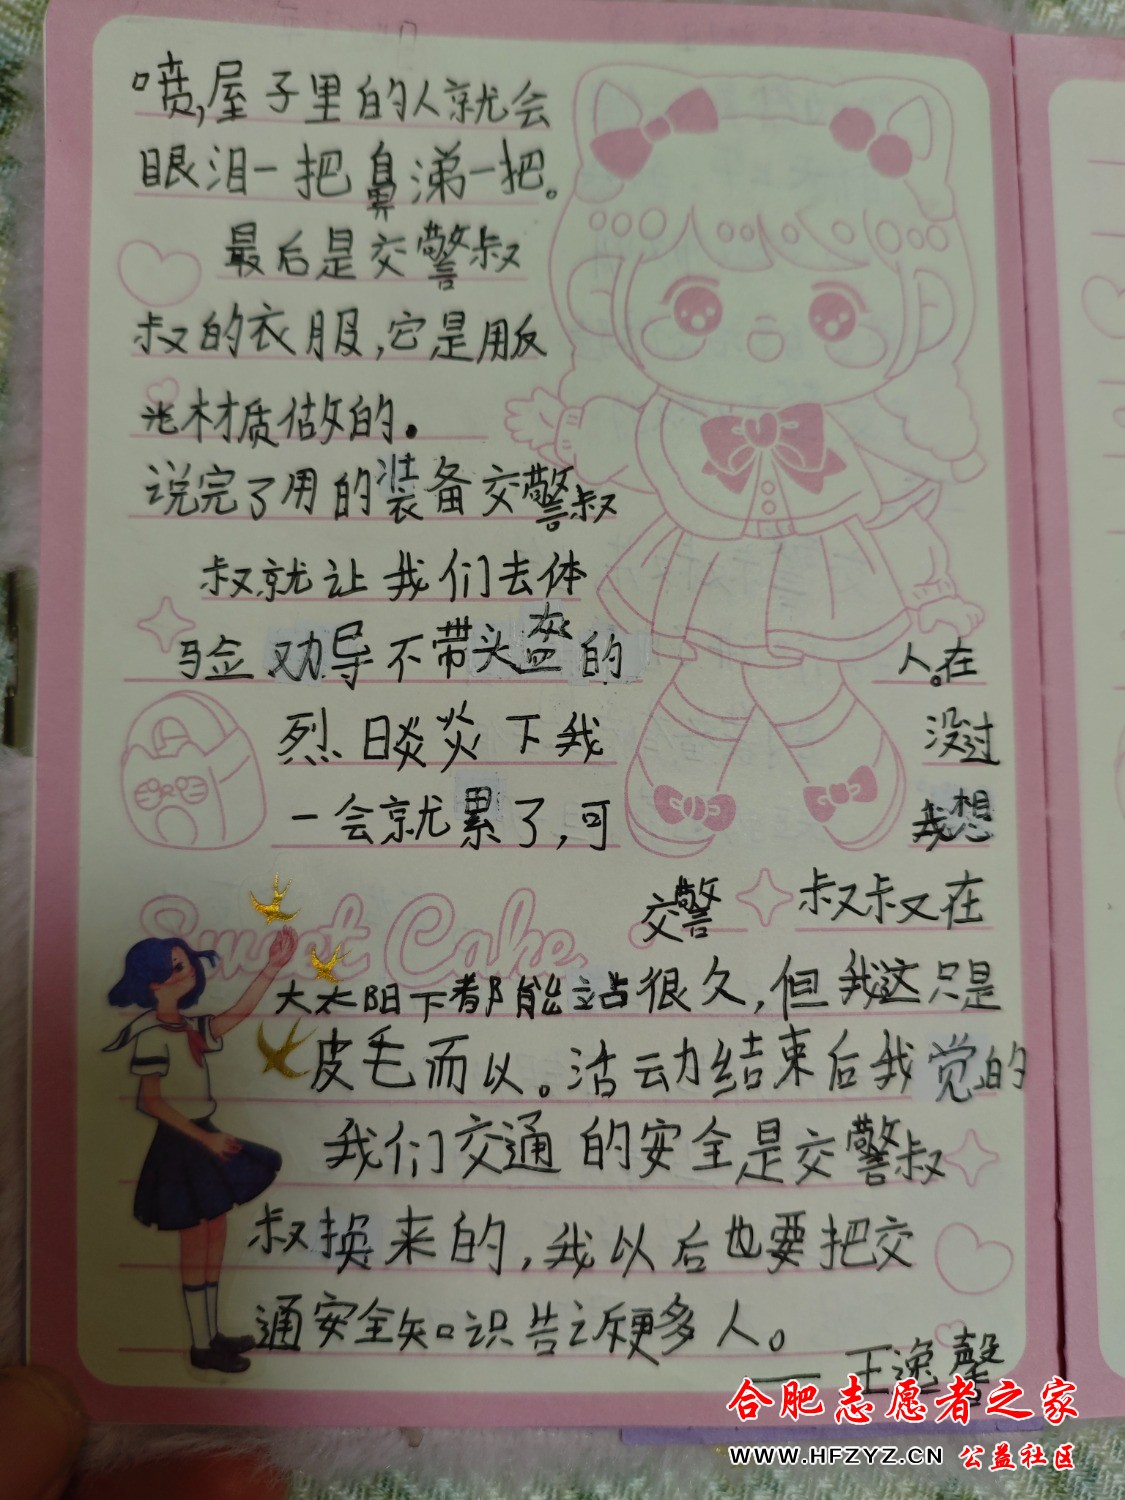 喷,屋子里的人就会
眼泪一把鼻涕一把。
最后是交警叔
叔的衣服,它是用反
光材质做的。
说完了用的装备交警叔
叔就让我们去体
验劝导不带头盔的人。在
烈日炎炎下我没过
一会就累了,可我想
交警叔叔又在
大太阳下都能站很久,但我这只是
皮毛而以。活动结束后我觉的
我们交通的安全是交警叔
叔换来的,我以后也要把交
通安全知识告诉更多人。
——王逸馨
Sweet Cake
合肥志愿者之家
WWW.HFZYZ.CN 公益社区